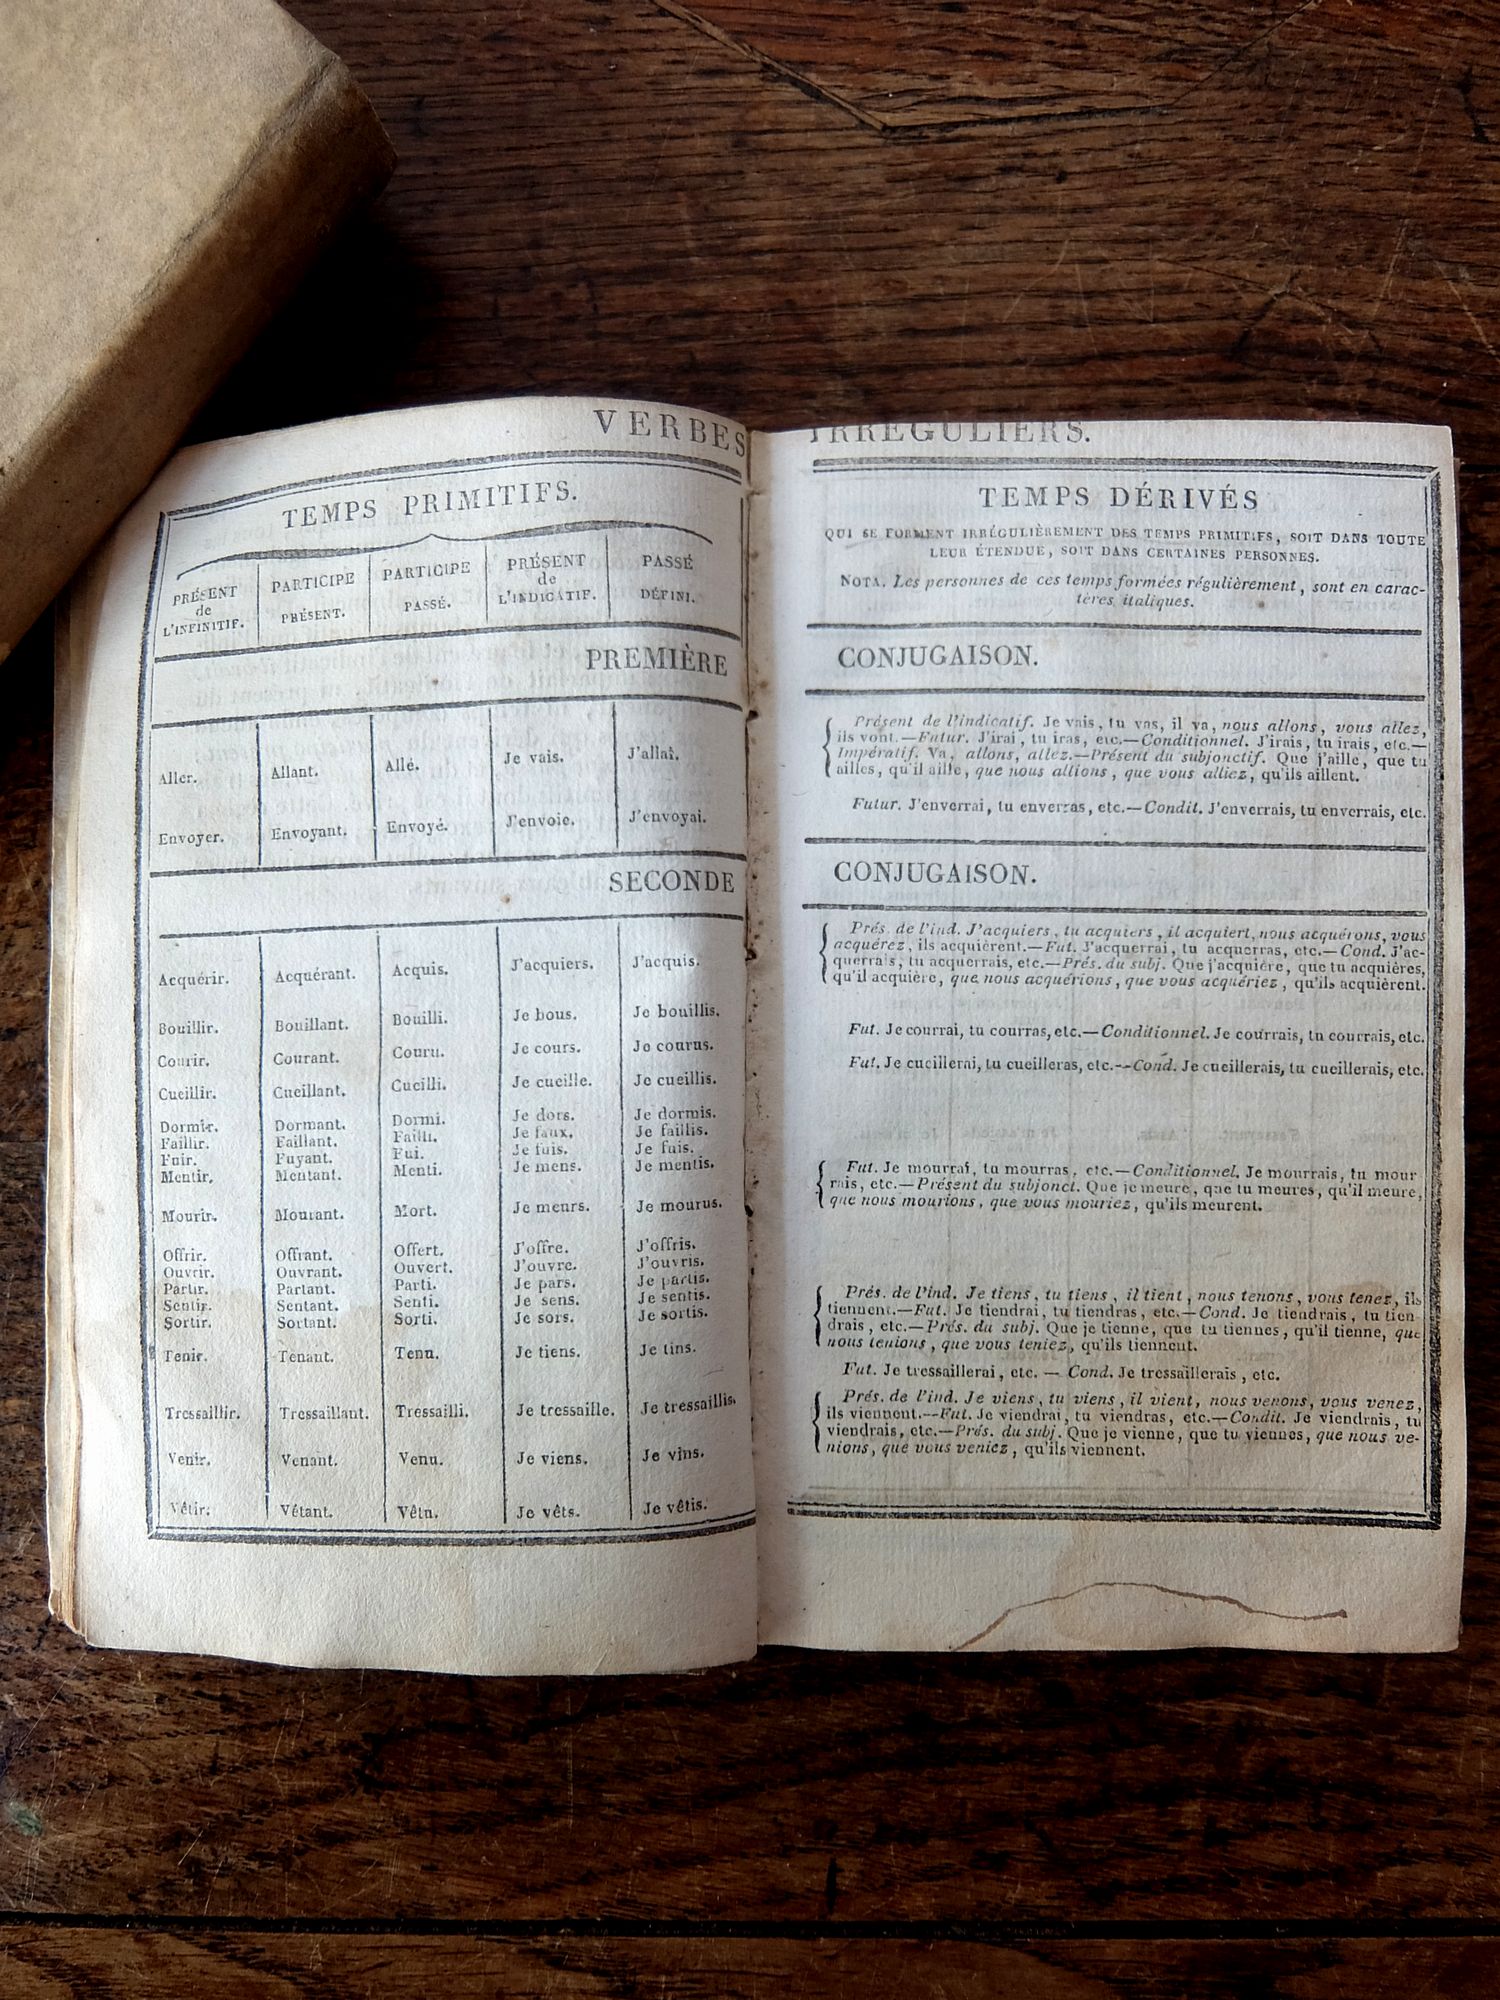 VERBES IRREGULIERS.
TEMPS PRIMITIFS.
PRÉSENT de L'INFINITIF.
PARTICIPE PRÉSENT.
PARTICIPE PASSÉ.
PRÉSENT de L'INDICATIF.
PASSÉ DÉFINI.
TEMPS DÉRIVÉS
QUI SE FORMENT IRRÉGULIÈREMENT DES TEMPS PRIMITIFS, SOIT DANS TOUTE
LEUR ÉTENDUE, SOIT DANS CERTAINES PERSONNES.
NOTA. Les personnes de ces temps formées régulièrement, sont en carac-
tères italiques.
PREMIÈRE CONJUGAISON.
Aller. Allant. Allé. Je vais. J'allai.
Présent de l'indicatif. Je vais, tu vas, il va, nous allons, vous allez,
ils vont.—Futur. J'irai, tu iras, etc.—Conditionnel. J'irais, tu irais, etc.—
Impératif. Va, allons, allez.—Présent du subjonctif. Que j'aille, que tu
ailles, qu'il aille, que nous allions, que vous alliez, qu'ils aillent.
Envoyer. Envoyant. Envoyé. J'envoie. J'envoyai.
Futur. J'enverrai, tu enverras, etc.—Condit. J'enverrais, tu enverrais, etc.
SECONDE CONJUGAISON.
Acquérir. Acquérant. Acquis. J'acquiers. J'acquis.
Prés. de l'ind. J'acquiers, tu acquiers, il acquiert, nous acquérons, vous
acquérez, ils acquièrent.—Fut. J'acquerrai, tu acquerras, etc.—Cond. J'ac-
querrais, tu acquerrais, etc.—Prés. du subj. Que j'acquière, que tu acquières,
qu'il acquière, que nous acquérions, que vous acquériez, qu'ils acquièrent.
Bouillir. Bouillant. Bouilli. Je bous. Je bouillis.
Courir. Courant. Couru. Je cours. Je courus.
Fut. Je courrai, tu courras, etc.—Conditionnel. Je courrais, tu courrais, etc.
Cueillir. Cueillant. Cueilli. Je cueille. Je cueillis.
Fut. Je cueillerai, tu cueilleras, etc.—Cond. Je cueillerais, tu cueillerais, etc.
Dormir. Dormant. Dormi. Je dors. Je dormis.
Faillir. Faillant. Failli. Je faux. Je faillis.
Fuir. Fuyant. Fui. Je fuis. Je fuis.
Mentir. Mentant. Menti. Je mens. Je mentis.
Mourir. Mourant. Mort. Je meurs. Je mourus.
Fut. Je mourrai, tu mourras, etc.—Conditionnel. Je mourrais, tu mour
rais, etc.—Présent du subjonct. Que je meure, que tu meures, qu'il meure,
que nous mourions, que vous mouriez, qu'ils meurent.
Offrir. Offrant. Offert. J'offre. J'offris.
Ouvrir. Ouvrant. Ouvert. J'ouvre. J'ouvris.
Partir. Partant. Parti. Je pars. Je partis.
Sentir. Sentant. Senti. Je sens. Je sentis.
Sortir. Sortant. Sorti. Je sors. Je sortis.
Tenir. Tenant. Tenu. Je tiens. Je tins.
Prés. de l'ind. Je tiens, tu tiens, il tient, nous tenons, vous tenez, ils
tiennent.—Fut. Je tiendrai, tu tiendras, etc.—Cond. Je tiendrais, tu tien
drais, etc.—Prés. du subj. Que je tienne, que tu tiennes, qu'il tienne, que
nous tenions, que vous teniez, qu'ils tiennent.
Tressaillir. Tressaillant. Tressailli. Je tressaille. Je tressaillis.
Fut. Je tressaillerai, etc. — Cond. Je tressaillerais, etc.
Venir. Venant. Venu. Je viens. Je vins.
Prés. de l'ind. Je viens, tu viens, il vient, nous venons, vous venez,
ils viennent.—Fut. Je viendrai, tu viendras, etc.—Condit. Je viendrais, tu
viendrais, etc.—Prés. du subj. Que je vienne, que tu viennes, que nous ve-
nions, que vous veniez, qu'ils viennent.
Vêtir. Vêtant. Vêtu. Je vêts. Je vêtis.